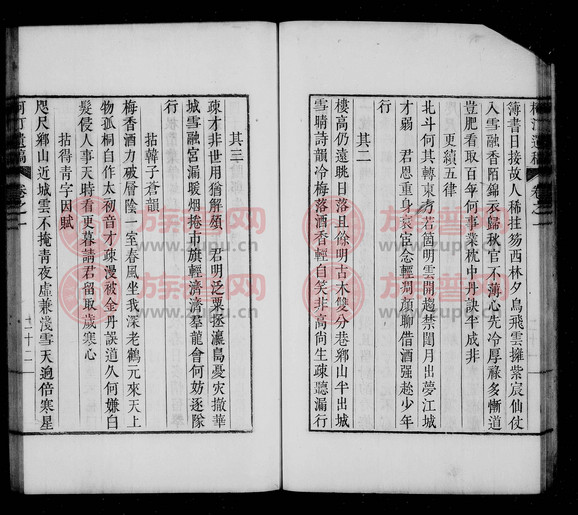 簿書日接故人稀拄笏西林夕鳥飛雲擁紫宸仙仗
入雪融香陌錦衣歸秋官不薄心先冷厚祿多慚道
豈肥看取百年何事業枕中丹訣半成非
更續五律
北斗何其轉東方若箇明雲開趨禁闥月出夢江城
才弱 君恩重身衰宦念輕潤顏聊借酒强趁少年
行
其二
樓高仍遠眺日落且餘明古木雙分巷鄉山半出城
雪晴詩韻冷梅落酒香輕自笑非高尚生疎聽漏行
其三
疎才非世用猶解頌 君明泛粟拯瀛島憂灾撤華
城雪融宮漏暖烟捲市旗輕濟濟羣龍會何妨逐隊
行
拈韓子蒼韻
梅香酒力破層陰一室春風坐我深老鶴元來天上
物孤桐自作太初音才疎漫被金丹誤道久何嫌白
髮侵人事天時看更暮請君留取歲寒心
拈得靑字因賦
咫尺鄉山近城雲不掩靑夜虛兼淺雪天逈倍寒星
卷之一
二十二
族譜网
zupu.cn